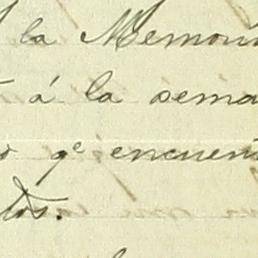 la Memori
á la sema
qe encuen
tos.